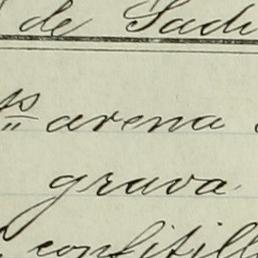 de Sadi
arena
grava
confitill